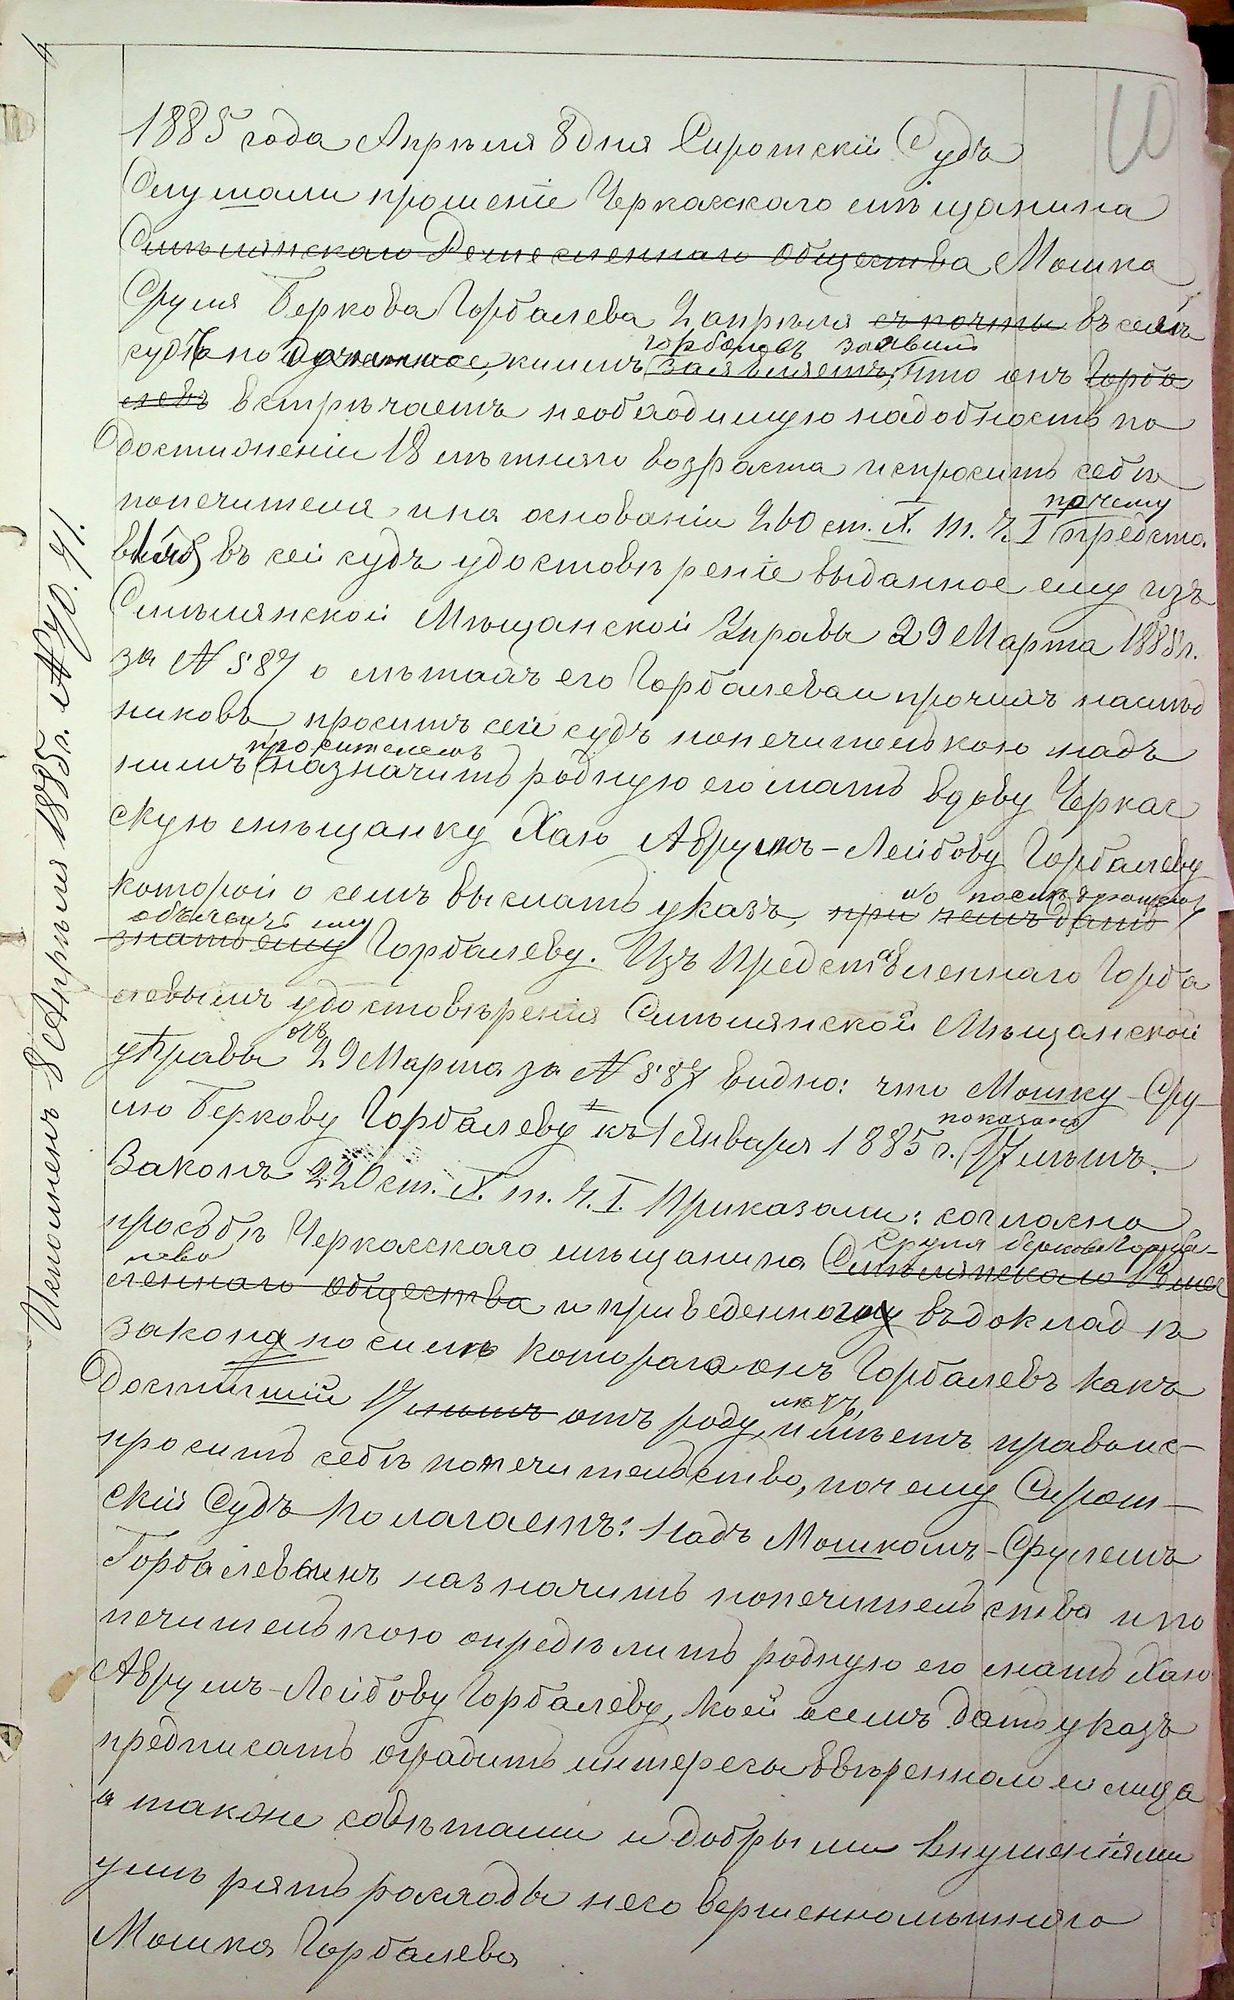 10
1885 года Апрѣля 8 дня Сиротскій Судъ
Слушали прошеніе Черкасскаго мѣщанина
Смѣлянскаго Ремесленнаго Общества Мошка
Сруля Беркова Горбалева 2 апрѣля съ почты въ семъ
судѣ по коимъ Горбалевъ заявилъ заявляетъ, что онъ Горба
левъ встрѣчаетъ необходимую надобность по
достиженіи 18 лѣтняго возраста испросить себѣ
попечителя и на основаніи 260 ст. X. т. ч. I почему предста
въ сей судъ удостовѣреніе выданное ему изъ
Смѣлянской Мѣщанской Управы 29 Марта 1885 г.
за № 587 о лѣтахъ его Горбалева и прочихъ наслѣд
никовъ проситъ сей судъ попечителькою надъ
нимъ просителемъ назначить родную его мать вдову Черкас
скую мѣщанку Хаю Аврумъ-Лейбову Горбалеву
которой о семъ выслать указъ, при чемъ дать
знать ему объявить ему Горбалеву. Изъ представленнаго Горба
левымъ удостовѣренія Смѣлянской Мѣщанской
управы отъ 29 Марта за № 587 видно: что Мошку-Сру-
лю Беркову Горбалеву къ 1 Января 1885 г. показано 17 лѣтъ.
Законъ 220 ст. X. т. ч. I. Приказали: согласно
просьбѣ Черкасскаго мѣщанина Сруля Беркова Горба-
лева Смѣлянскаго Ремес
леннаго Общества и приведенному въ докладѣ
закона по силѣ котораго онъ Горбалевъ какъ
достигшій 17 лѣтъ отъ роду лѣтъ, имѣетъ право ис-
просить себѣ попечительство, почему Сирот-
скій Судъ Полагаетъ: надъ Мошкомъ-Срулемъ
Горбалевымъ назначить попечительства и по
печителькою опредѣлить родную его мать Хаю
Аврумъ-Лейбову Горбалеву, коей о семъ дать указъ
предписать оградить интересы ввѣреннаго ей лица
а также совѣтами и добрыми внушеніями
умѣрять расходы несовершеннолѣтняго
Мошка Горбалева
Исполненъ 8 Апрѣля 1885 г. № 70. 71.